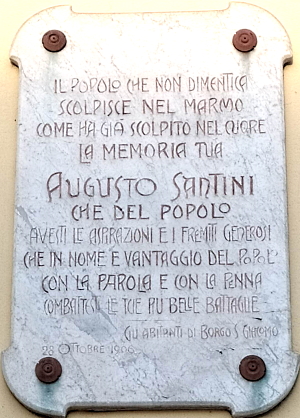 IL POPOLO CHE NON DIMENTICA
SCOLPISCE NEL MARMO
COME HA GIÀ SCOLPITO NEL CUORE
LA MEMORIA TUA
AUGUSTO SANTINI
CHE DEL POPOLO
AVESTI LE ASPIRAZIONI E I FREMITI GENEROSI
CHE IN NOME E VANTAGGIO DEL POPOLO
CON LA PAROLA E CON LA PENNA
COMBATTESTI LE TUE PIU BELLE BATTAGLIE
GLI ABITANTI DI BORGO S. GIACOMO
28 OTTOBRE 1906